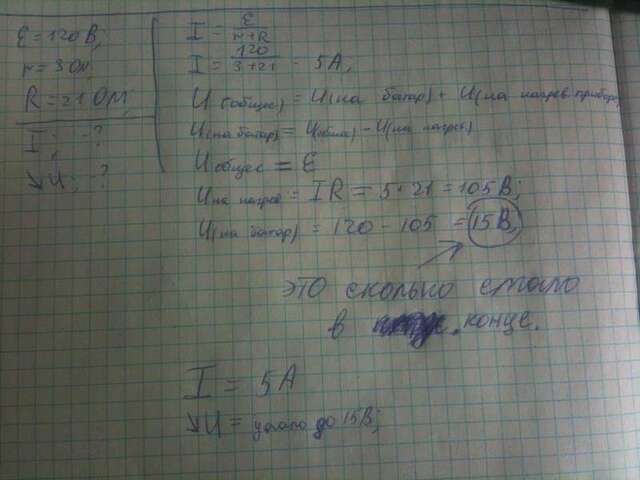 ε = 120 В;
r = 3 Ом,
R = 21 ОМ,
I; - ?
↘U; ?
I = ε / r+R
I = 120 / 3+21 = 5А,
U(общес) = U(на батар) + U(на нагрев приборе)
U(на батар) = U(общ) - U(на нагрев)
U общес = ε
U на нагрев = IR = 5·21 = 105В;
U(на батар) = 120 - 105 = 15В,
это сколько стало
в конце.
I = 5А
↘U = упало до 15В;